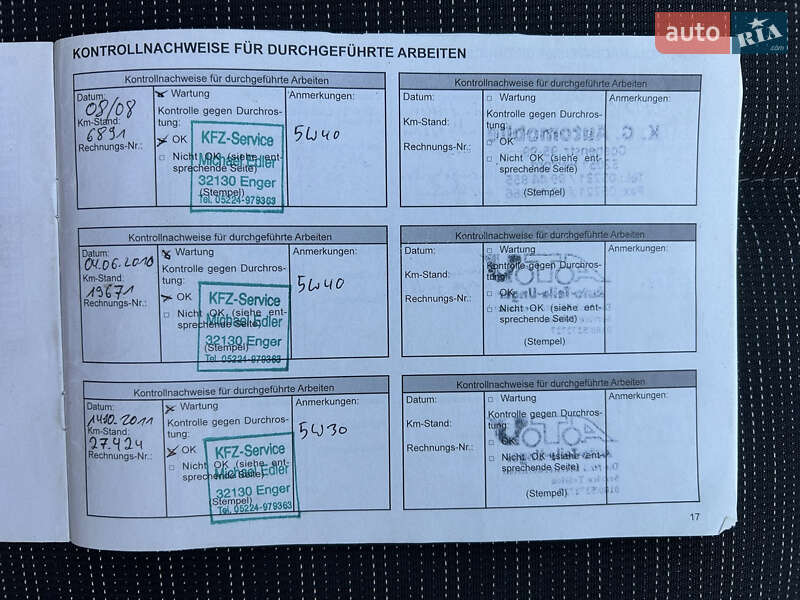 auto RIA .com
KONTROLLNACHWEISE FÜR DURCHGEFÜHRTE ARBEITEN
Kontrollnachweise für durchgeführte Arbeiten
Datum:
08/08
Km-Stand:
6891
Rechnungs-Nr.:
Wartung
Kontrolle gegen Durchros-
tung:
OK
Nicht OK (siehe ent-
sprechende Seite)
(Stempel)
KFZ-Service
Michael Edler
32130 Enger
Tel. 05224-979363
Anmerkungen:
5W40
Kontrollnachweise für durchgeführte Arbeiten
Datum:
04.06.2010
Km-Stand:
19671
Rechnungs-Nr.:
Wartung
Kontrolle gegen Durchros-
tung:
OK
Nicht OK (siehe ent-
sprechende Seite)
(Stempel)
KFZ-Service
Michael Edler
32130 Enger
Tel. 05224-979363
Anmerkungen:
5W40
Kontrollnachweise für durchgeführte Arbeiten
Datum:
14.10.2011
Km-Stand:
27.424
Rechnungs-Nr.:
Wartung
Kontrolle gegen Durchros-
tung:
OK
Nicht OK (siehe ent-
sprechende Seite)
(Stempel)
KFZ-Service
Michael Edler
32130 Enger
Tel. 05224-979363
Anmerkungen:
5W30
Kontrollnachweise für durchgeführte Arbeiten
Datum:
Km-Stand:
Rechnungs-Nr.:
Wartung
Kontrolle gegen Durchros-
tung:
OK
Nicht OK (siehe ent-
sprechende Seite)
(Stempel)
Anmerkungen:
Kontrollnachweise für durchgeführte Arbeiten
Datum:
Km-Stand:
Rechnungs-Nr.:
Wartung
Kontrolle gegen Durchros-
tung:
OK
Nicht OK (siehe ent-
sprechende Seite)
(Stempel)
Anmerkungen:
Kontrollnachweise für durchgeführte Arbeiten
Datum:
Km-Stand:
Rechnungs-Nr.:
Wartung
Kontrolle gegen Durchros-
tung:
OK
Nicht OK (siehe ent-
sprechende Seite)
(Stempel)
Anmerkungen:
17